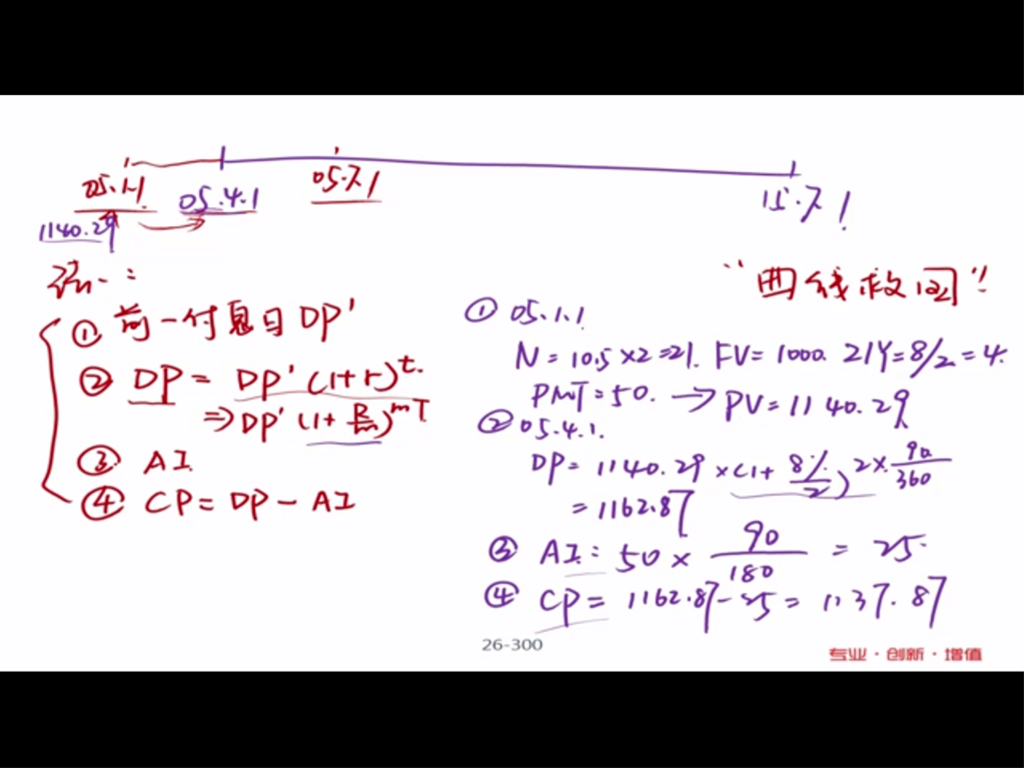 05.1.1
05.4.1
05.7.1
15.7.1
1140.29
①前一付息日 DP'
② DP = DP'(1+r)^t.
⇒ DP'(1+ R/m)^mT
③ AI
④ CP = DP - AI
"曲线救国"
① 05.1.1
N = 10.5×2=21. FV= 1000. 2IY=8/2=4.
PMT=50. → PV=1140.29
② 05.4.1.
DP= 1140.29 ×(1+ 8%/2)^2× 90/360
= 1162.87
③ AI: 50 × 90/180 = 25.
④ CP= 1162.87-25= 1137.87
26-300
专业·创新·增值